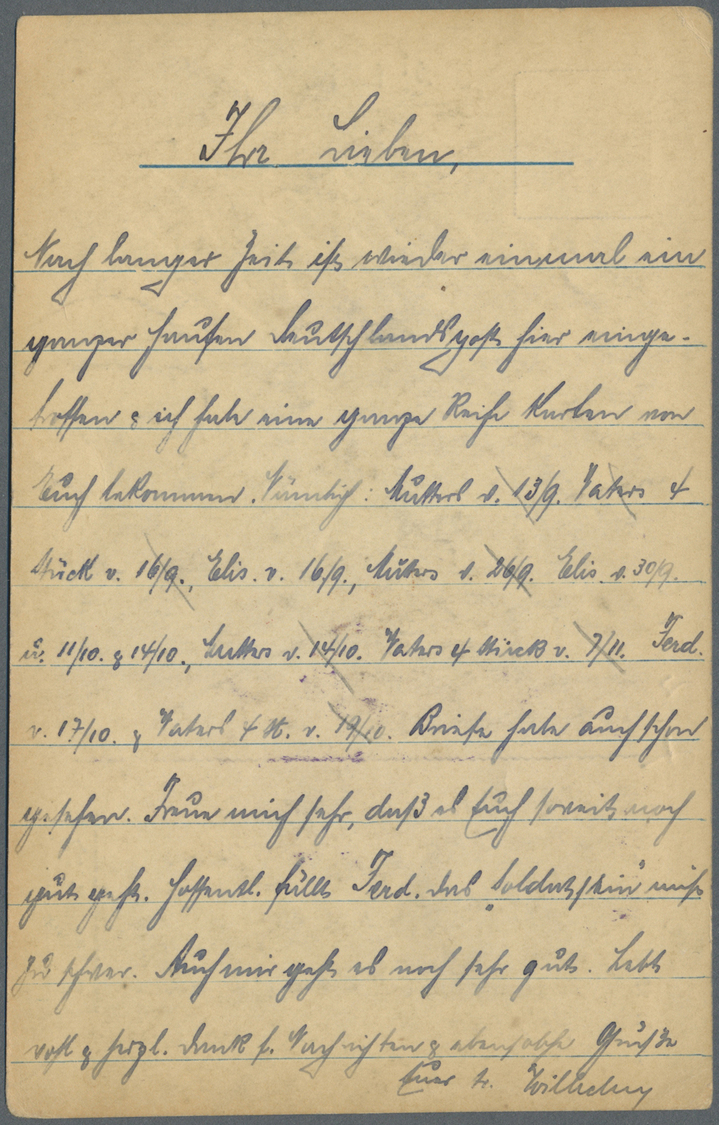 Ihr Lieben,
Nach langer Zeit ist wieder einmal ein
ganzer Haufen Deutschlandspost hier einge-
troffen & ich habe eine ganze Reihe Karten von
Euch bekommen. Nämlich: Mutters v. 13/9. Vaters 4
Stück v. 16/9., Elis. v. 16/9., Mutters v. 26/9. Elis. v. 30/9.
u. 11/10. & 14/10., Mutters v. 14/10. Vaters 4 Stück v. 7/11. Ferd.
v. 17/10. & Vaters 4 St. v. 19/10. Briefe habe auch schon
gesehen. Freue mich sehr, daß es Euch soweit noch
gut geht. Hoffentl. fällt Ferd. das "Soldatsein" nicht
zu schwer. Auch mir geht es noch sehr gut. Lebt
wohl & herzl. Dank f. Nachrichten & ebensolche Grüße
Euer tr. Wilhelm